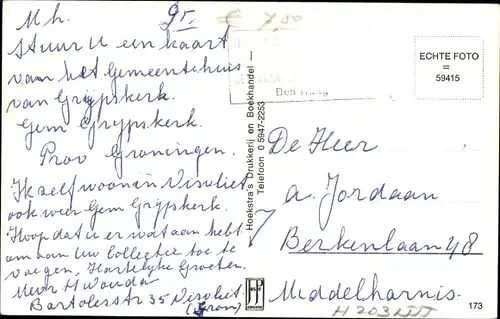 Mh.
Stuur U een kaart
van het Gemeentehuis
van Grijpskerk.
Gem Grijpskerk.
Prov Groningen.
Ik zelf woon in Visvliet
ook weer Gem Grijpskerk.
Hoop dat u er wat aan hebt
om aan Uw Collectie toe te
voegen, Hartelijke Groeten.
Mevr H Wouda
Bartolesstr 35 Visvliet
(Gron)
gr.
€ 7,50
Den Haag
Hoekstra's Drukkerij en Boekhandel —
Telefoon 0 5947-2253
ECHTE FOTO
=
59415
De Heer
A. Jordaan
Berkenlaan 48
Middelharnis
H 203
173